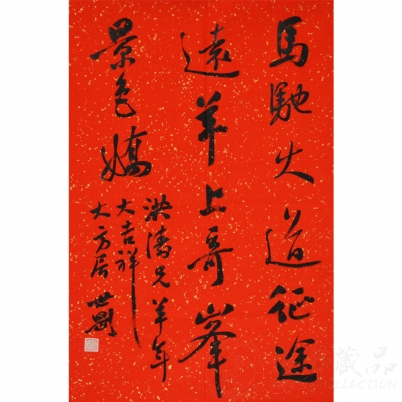 馬馳大道征途
遠羊上奇峯
景色嬌
洪濤兄羊年
大吉祥
大方居 世剛
藏品
COLLECTION